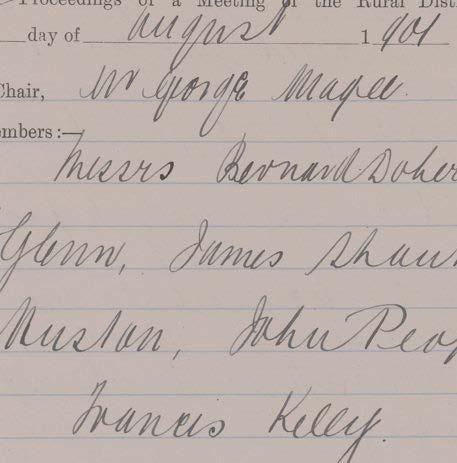 Proceedings of a Meeting of the Rural Dist
day of August 1901
Chair, Mr George Magee.
embers:—
Messrs Bernard Doher
Glenn, James Shau
Huston, John Peop
Francis Kelly.